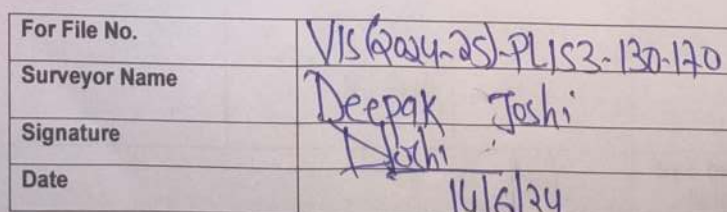 For File No. VIS(2024-25)-PL153-130-170
Surveyor Name Deepak Joshi
Signature Joshi
Date 14/6/24